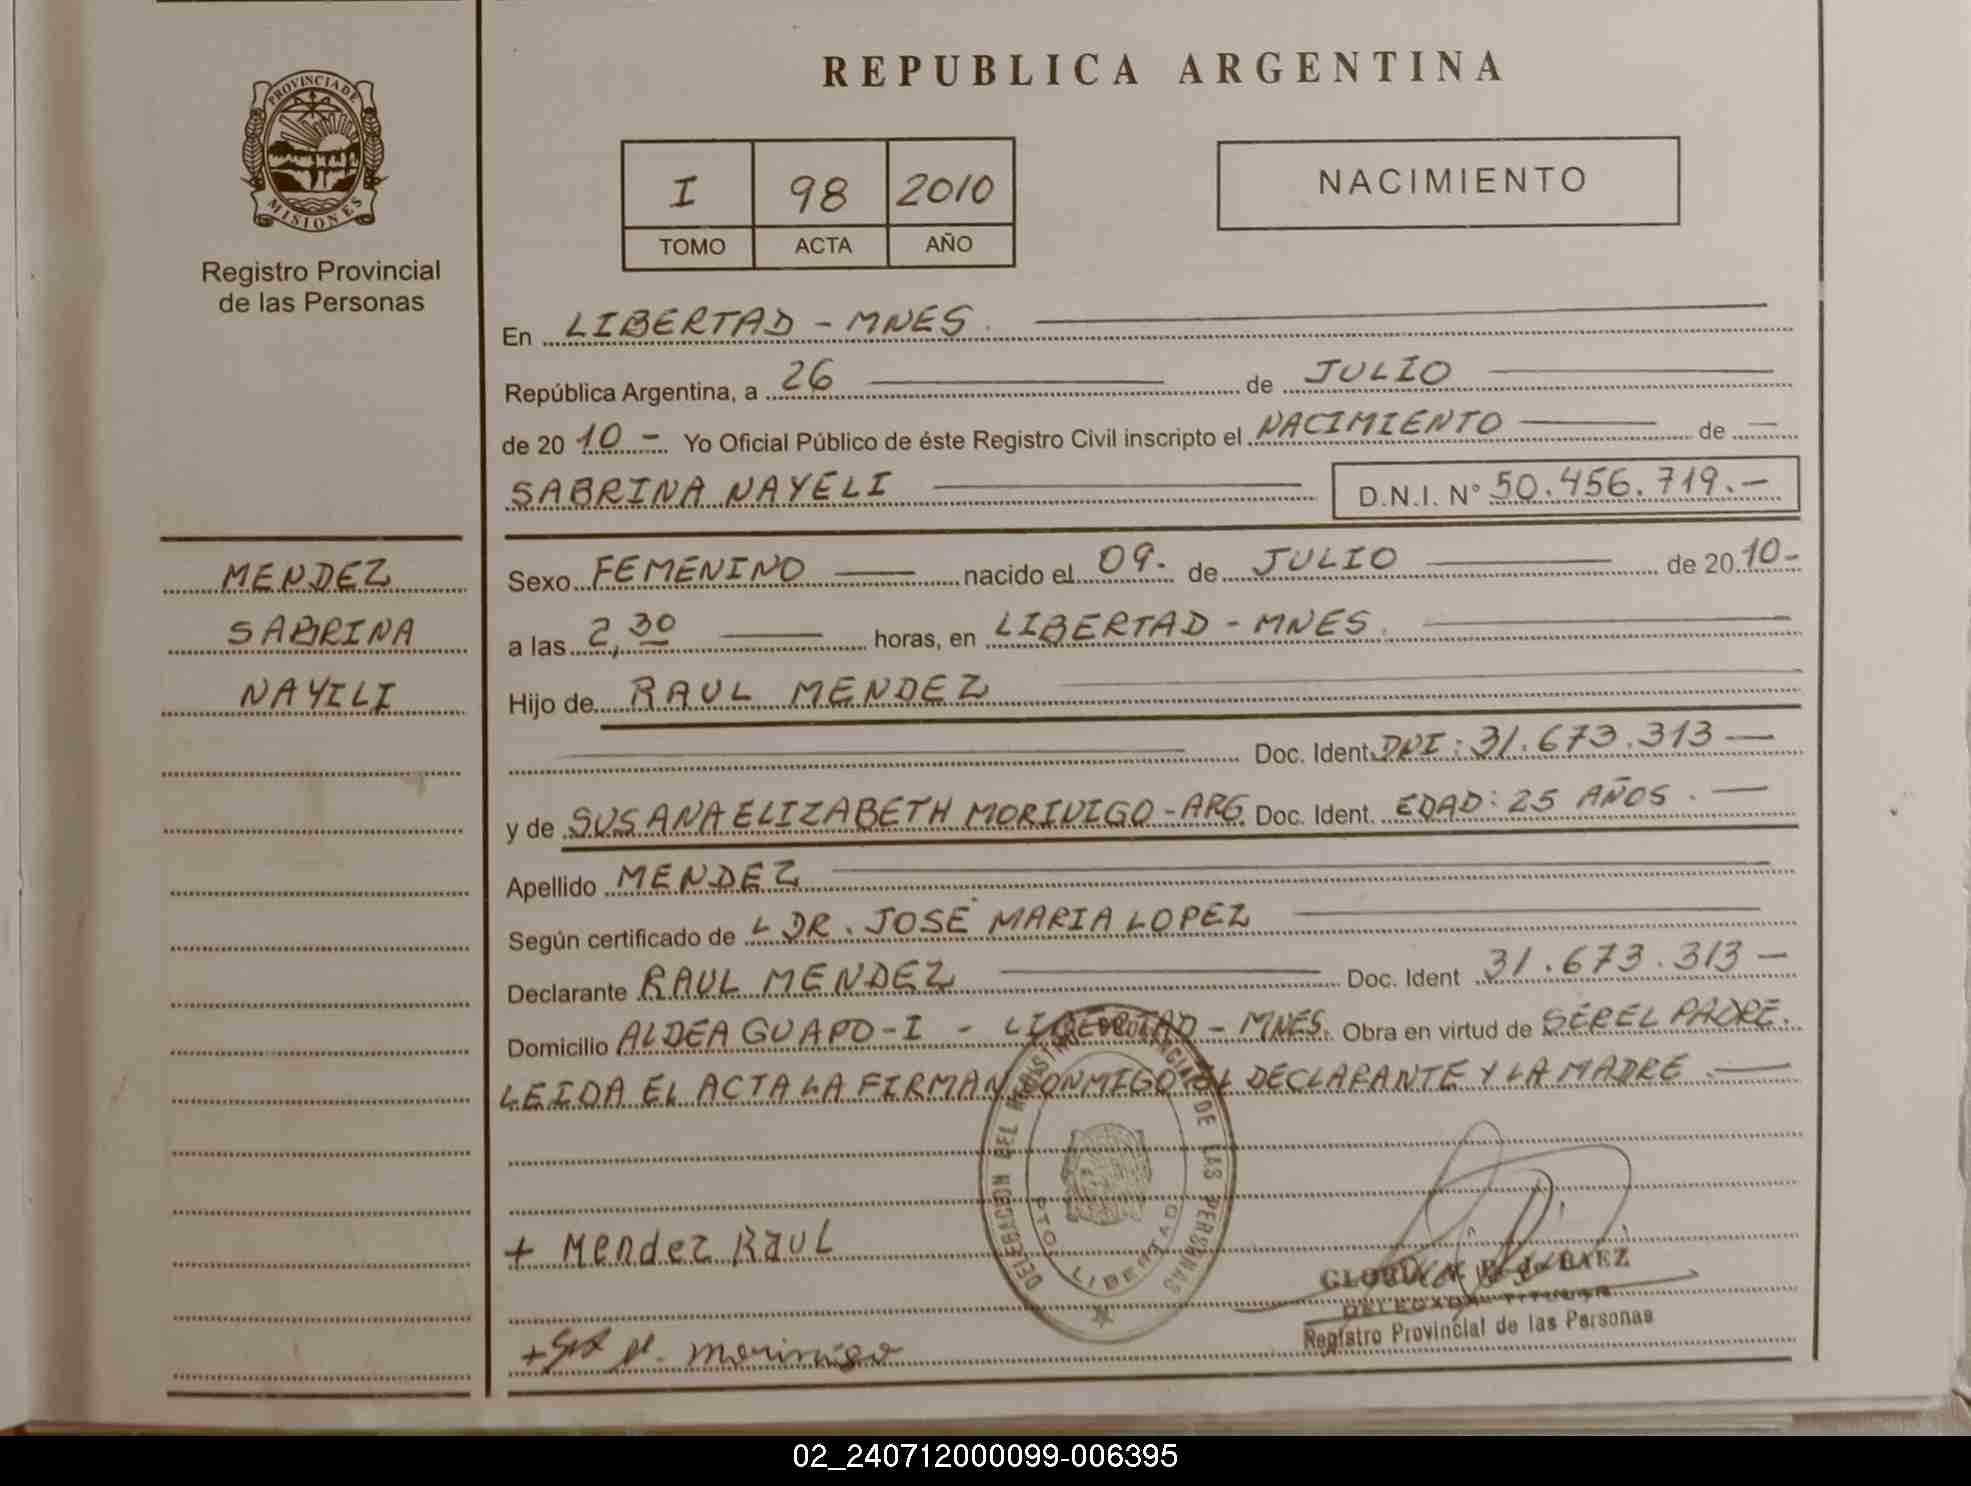 REPUBLICA ARGENTINA
PROVINCIA DE
MISIONES
Registro Provincial
de las Personas
I 98 2010
TOMO ACTA AÑO
NACIMIENTO
En LIBERTAD - MNES.
República Argentina, a 26 de JULIO
de 2010 - Yo Oficial Público de éste Registro Civil inscripto el NACIMIENTO de
SABRINA NAYELI D.N.I. N° 50.456.719.-
MENDEZ
SABRINA
NAYILI
Sexo FEMENINO nacido el 09. de JULIO de 2010-
a las 2,30 horas, en LIBERTAD - MNES.
Hijo de RAUL MENDEZ
Doc. Ident. DNI: 31.673.313 —
y de SUSANA ELIZABETH MORINIGO - ARG. Doc. Ident. EDAD: 25 AÑOS. —
Apellido MENDEZ
Según certificado de L DR. JOSÉ MARIA LOPEZ
Declarante RAUL MENDEZ Doc. Ident 31.673.313 —
Domicilio ALDEA GUAPO-I - LIBERTAD - MNES. Obra en virtud de SER EL PADRE.
LEIDA EL ACTA LA FIRMAN CONMIGO EL DECLARANTE Y LA MADRE. —
DELEGACION DEL REGISTRO PROVINCIAL DE LAS PERSONAS
PTO. LIBERTAD
+ Mendez Raul
BAEZ
DELEGADA TITULAR
Registro Provincial de las Personas
morinigo
02_240712000099-006395